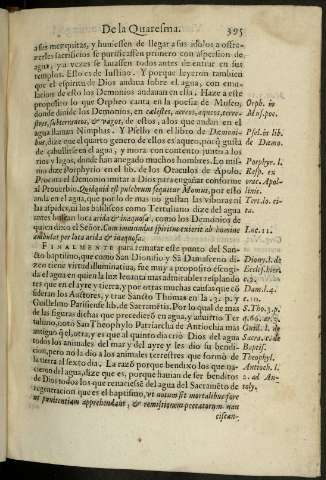 De la Quaresma. 395
a sus mezquitas, y huniessen de llegar a sus idolos a ofre-
cerles sacrificios se purificassen primero con aspersion de
agua, y a vezes se lauassen todos antes de entrar en sus
templos. Esto es de Iustino. Y porque leyeron tambien
que el espiritu de Dios andaua sobre el agua, con emu-
lacion de esto los Demonios andauan en ella. Haze a este
proposito lo que Orpheo canta en la poesia de Museo,
donde diuide los Demonios, en celestes, aereos, aqueos, terre-
stres, subterraneos, & vagos, de estos, a los que andan en el
agua llaman Nimphas. Y Psello en el libro de Demoni-
bus, dize que el quarto genero de estos es aqueo, que gusta
de çabullirse en el agua, y mora con contento junto a los
rios y lagos, donde han anegado muchos hombres. Lo mis-
mo dize Porphyrio en el lib. de los Oraculos de Apolo.
Procura el Demonio imitar a Dios para engañar conforme
al Prouerbio. Quidquid est pulchrum sequitur Momus, por esto
anda en el agua, que por lo de mas no gustan las viboras ni
las aspides, ni los basiliscos como Tertuliano dize del agua
antes buscan loca arida & inaquosa, como los Demonios de
quien dixo el Señor. Cum immundus spiritus exierit ab homine
ambulat per loca arida & inaquosa.
FINALMENTE para rematar este punto del San-
cto baptismo, que como San Dionisio y Sã Damasceno di-
zen tiene virtud illuminatiua, fue muy a proposito escogi-
da el agua en quien la luz leuanta mas admirables resplando
res que en el ayre y tierra, y por otras muchas causas que cõ
sideran los Auctores, y trae Sancto Thomas en la 3. p. y
Guillelmo Parisiense lib. de Sacramẽtis. Por lo qual de mas
de las figuras dichas que precedierõ en agua, y aduirtio Ter
tuliano, noto San Theophylo Patriarcha de Antiochia mas
antiguo q̃ el, otra, y es que al quinto dia crio Dios del agua
todos los animales del mar y del ayre y les dio su bendi-
cion, pero no la dio a los animales terrestres que formò de
la tierra al sexto dia. La razõ porque bendixo los que na-
cieron del agua, dize que es, porque hauian de ser benditos
de Dios todos los que renaciessẽ del agua del Sacramẽto de
regeneracion que es el baptismo, vt notum sit mortalibus fore
vt pœnitentiam apprehendant, & remissionem peccatorum nan
ciscan-
Orph. in
Mus. poe.
Psel. in lib.
de Damo.
Porphyr. l.
Resp. ex
orac. Apol-
linis.
Tert. lo. ci-
ta.
Luc. 11.
Diony. l. de
Eccles. hier.
c. 3.
Dam. l. 4.
c. 10.
S. Tho. 3. p.
q. 66. a. 3.
Guil. l. de
Sacra. c. de
Baptis.
Theophyl.
Antioch. l.
2. ad An-
toly.